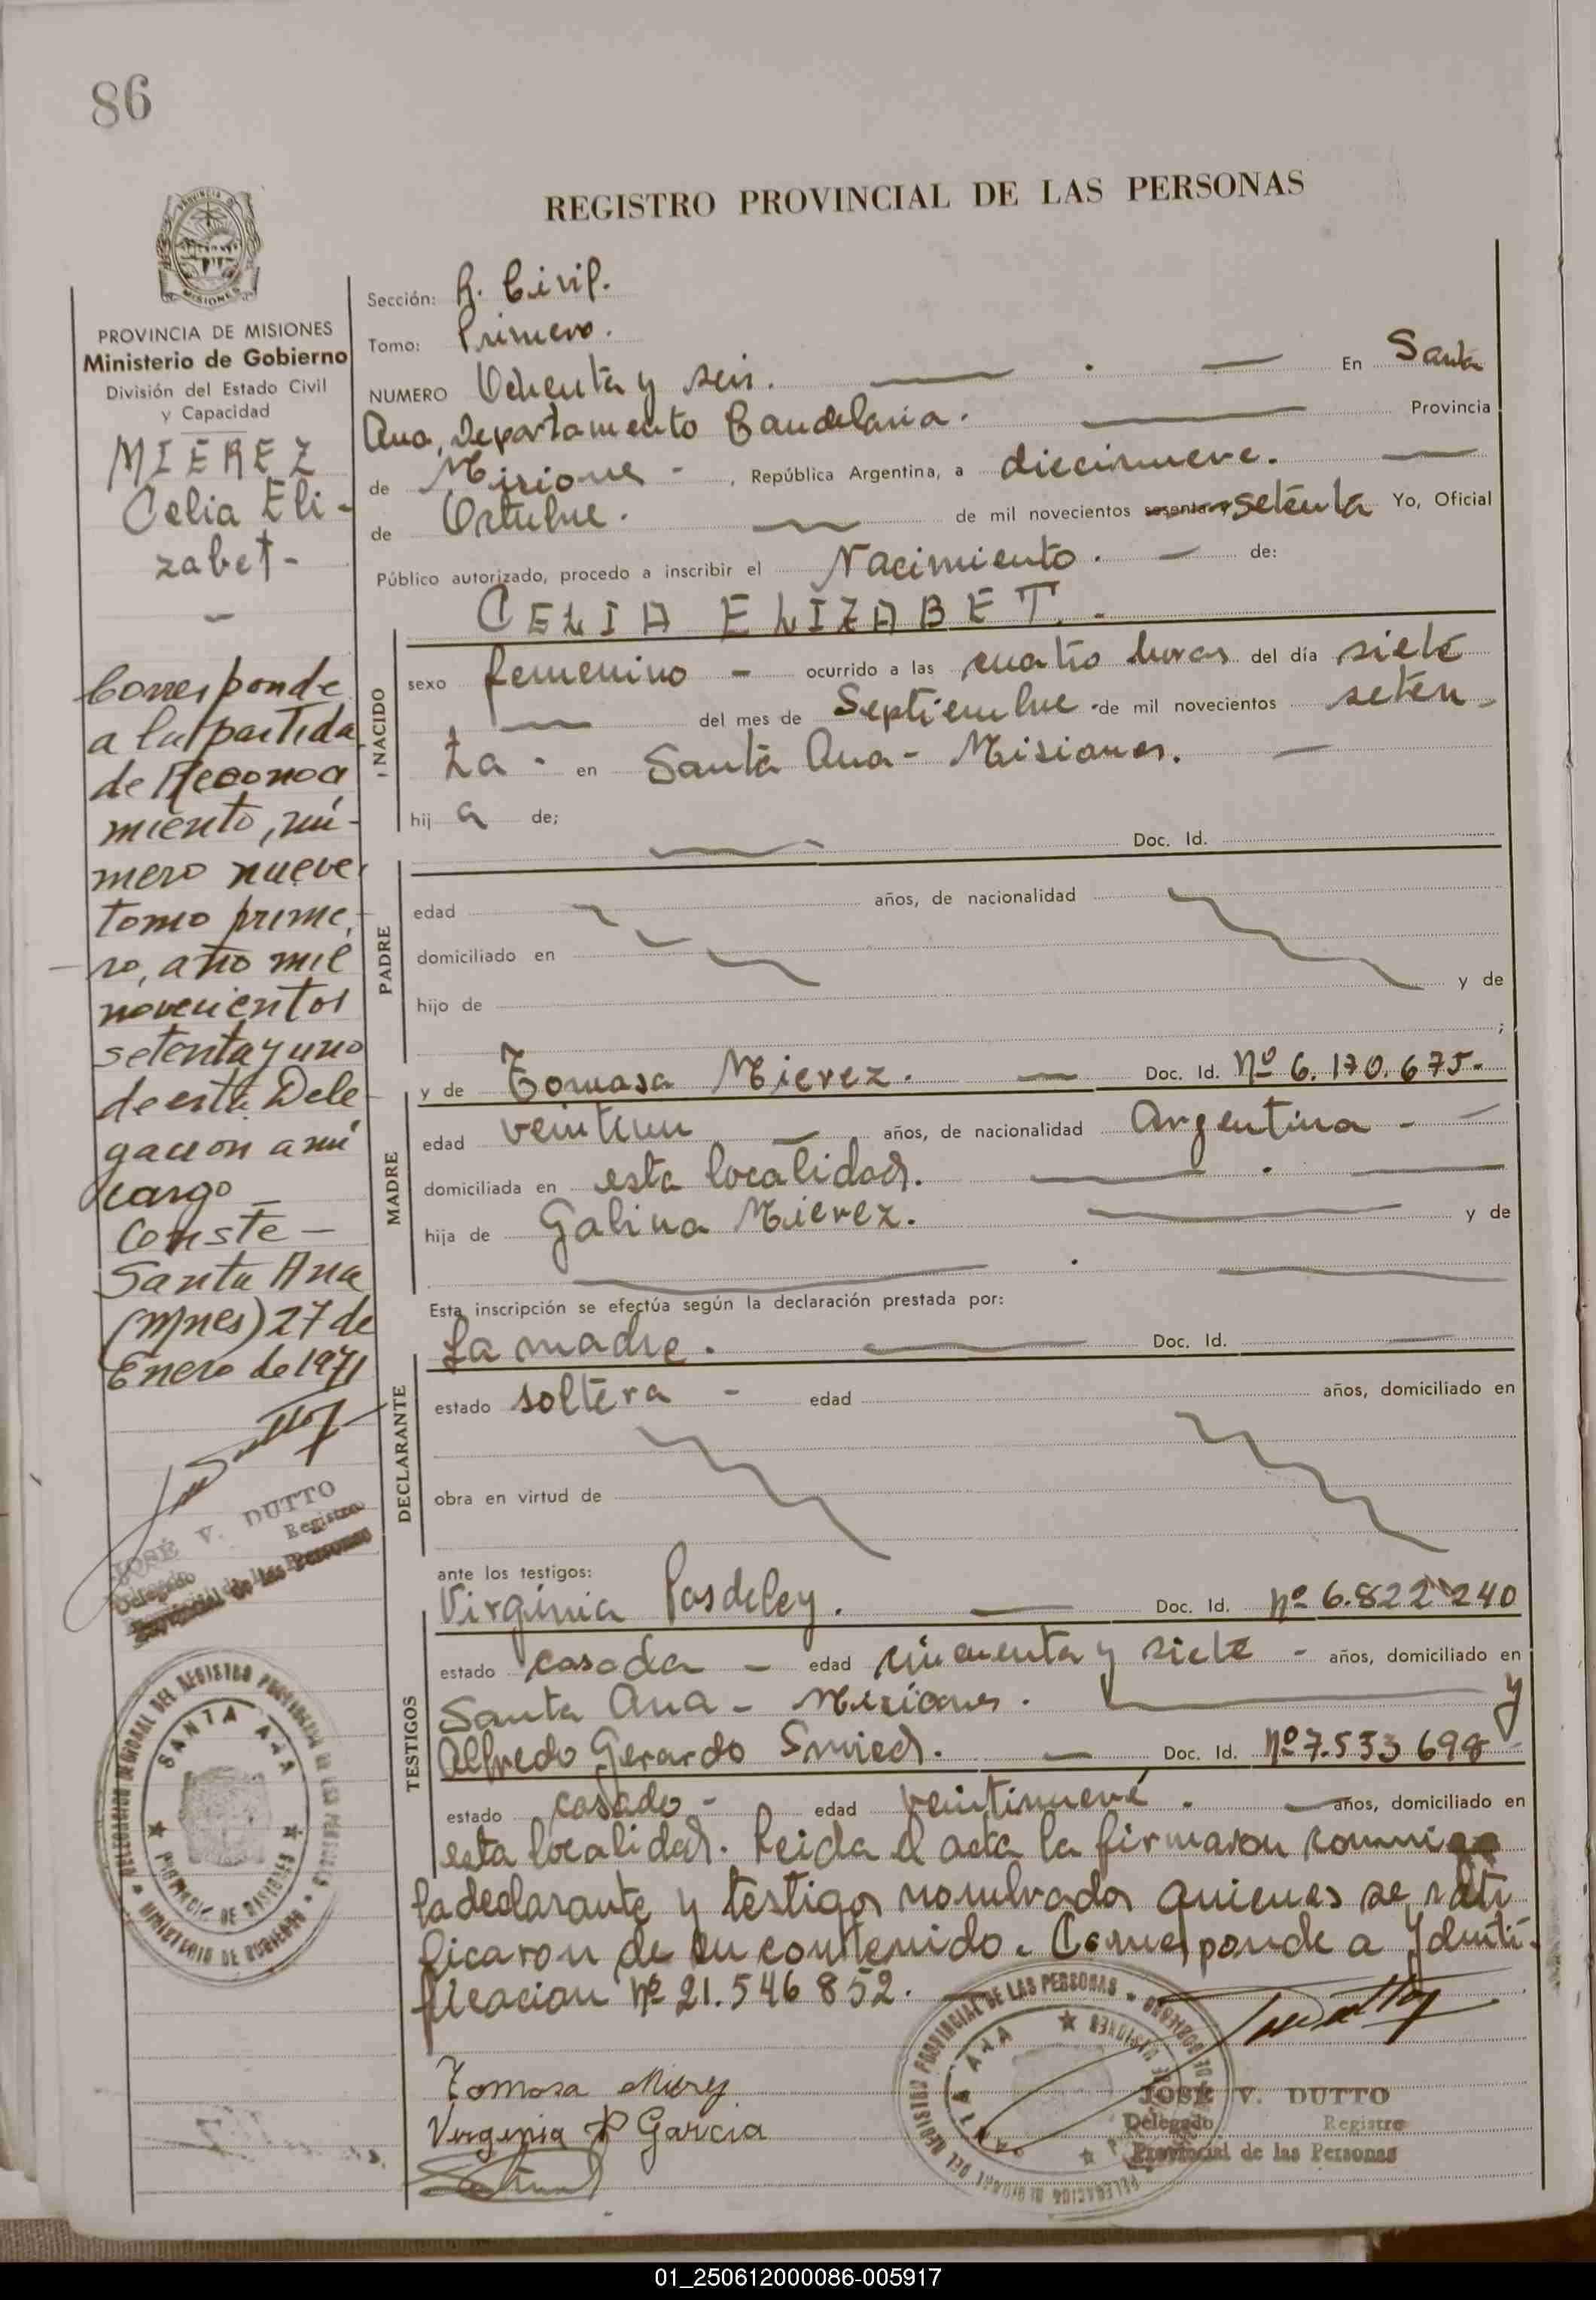 86
REGISTRO PROVINCIAL DE LAS PERSONAS
PROVINCIA DE MISIONES
Ministerio de Gobierno
División del Estado Civil
y Capacidad
MIEREZ
Celia Eli-
zabet-
Corresponde
a la partida
de Reconoci
miento, nú-
mero nueve
tomo prime,
ro, año mil
novecientos
setenta y uno
de esta Dele
gacion a mi
cargo
Conste -
Santa Ana
(Mnes) 27 de
Enero de 1971
JOSÉ V. DUTTO
Delegado Registro
Provincial de las Personas
DELEGACION DEL REGISTRO PROVINCIAL DE LAS PERSONAS
SANTA ANA
PROVINCIA DE MISIONES
MINISTERIO DE GOBIERNO
Sección: R. Civil.
Tomo: Primero.
NUMERO Ochenta y seis. En Santa
Ana, Departamento Candelaria. Provincia
de Misiones - , República Argentina, a diecinueve.
de Octubre. de mil novecientos sesenta y setenta Yo, Oficial
Público autorizado, procedo a inscribir el Nacimiento. de:
CELIA ELIZABET.-
NACIDO
sexo femenino - ocurrido a las cuatro horas del día siete
del mes de Septiembre de mil novecientos seten-
ta. en Santa Ana - Misiones.
hij a de;
Doc. Id.
PADRE
edad años, de nacionalidad
domiciliado en
hijo de y de
;
y de Tomasa Mierez. Doc. Id. Nº 6.170.675-
MADRE
edad veintiun años, de nacionalidad Argentina -
domiciliada en esta localidad.
hija de Galina Mierez. y de
Esta inscripción se efectúa según la declaración prestada por:
La madre. Doc. Id.
DECLARANTE
estado soltera - edad años, domiciliado en
obra en virtud de
ante los testigos:
Virginia Posdeley. Doc. Id. Nº 6.822.240
TESTIGOS
estado casada - edad cincuenta y siete - años, domiciliado en
Santa Ana - Misiones. y
Alfredo Gerardo Smied. Doc. Id. Nº 7.533.698
estado casado - edad veintinueve. años, domiciliado en
esta localidad. Leida el acta la firmaron conmigo
la declarante y testigos nombrados quienes se rati
ficaron de su contenido. Corresponde a Identi-
ficacion Nº 21.546.852.
Tomasa Mierez
Virginia P Garcia
JOSÉ V. DUTTO
Delegado Registro
Provincial de las Personas
01_250612000086-005917